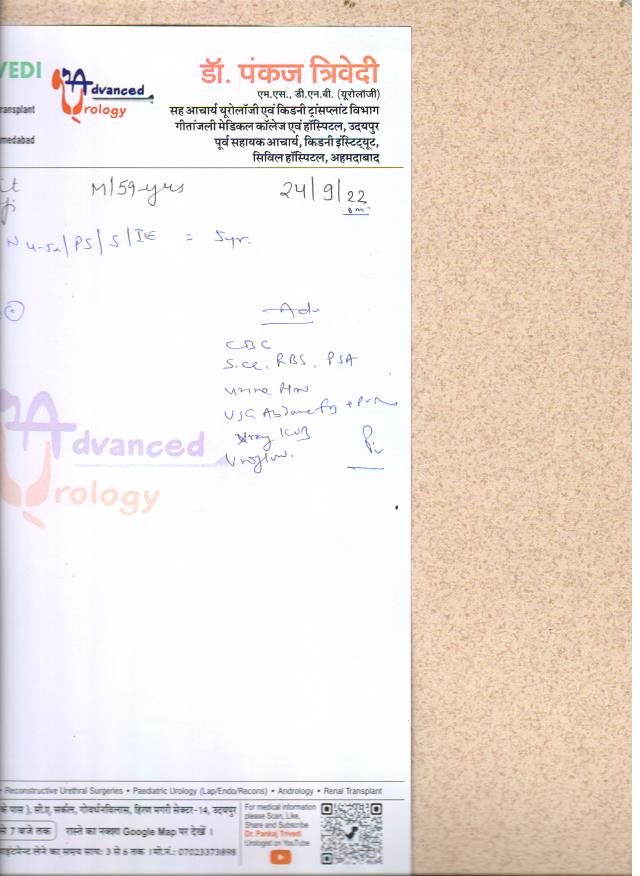 VEDI
Advanced
Urology
ransplant
medabad
डॉ. पंकज त्रिवेदी
एम.एस., डी.एन.बी. (यूरोलॉजी)
सह आचार्य यूरोलॉजी एवं किडनी ट्रांसप्लांट विभाग
गीतांजली मेडिकल कॉलेज एवं हॉस्पिटल, उदयपुर
पूर्व सहायक आचार्य, किडनी इंस्टिट्यूट,
सिविल हॉस्पिटल, अहमदाबाद
it M/59-yrs 24/9/22
ji
/PS/S/IE = 5yr.
Adv
CBC
S.ce, RBS, PSA
urine
USG Abdomen
Xray KUB
Uroflow.
Advanced
Urology
• Reconstructive Urethral Surgeries • Paediatric Urology (Lap/Endo/Recons) • Andrology • Renal Transplant
के पास ), सी.ए. सर्कल, गोवर्धनविलास, हिरण मगरी सेक्टर-14, उदयपुर
से 7 बजे तक रास्ते का नक्शा Google Map पर देखें ।
इंटमेन्ट लेने का समय सायः 3 से 6 तक । मो.नं.: 07023373898
For medical information
please Scan, Like,
Share and Subscribe
Dr. Pankaj Trivedi
Urologist on YouTube